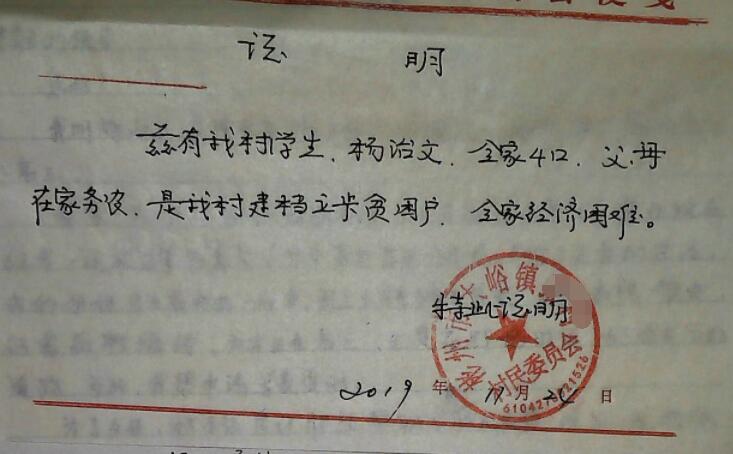 证 明
兹有我村学生、杨治文、全家4口、父母
在家务农、是我村建档立卡贫困户、全家经济困难。
特此证明
彬州市太峪镇
村民委员会
2019年11月 日